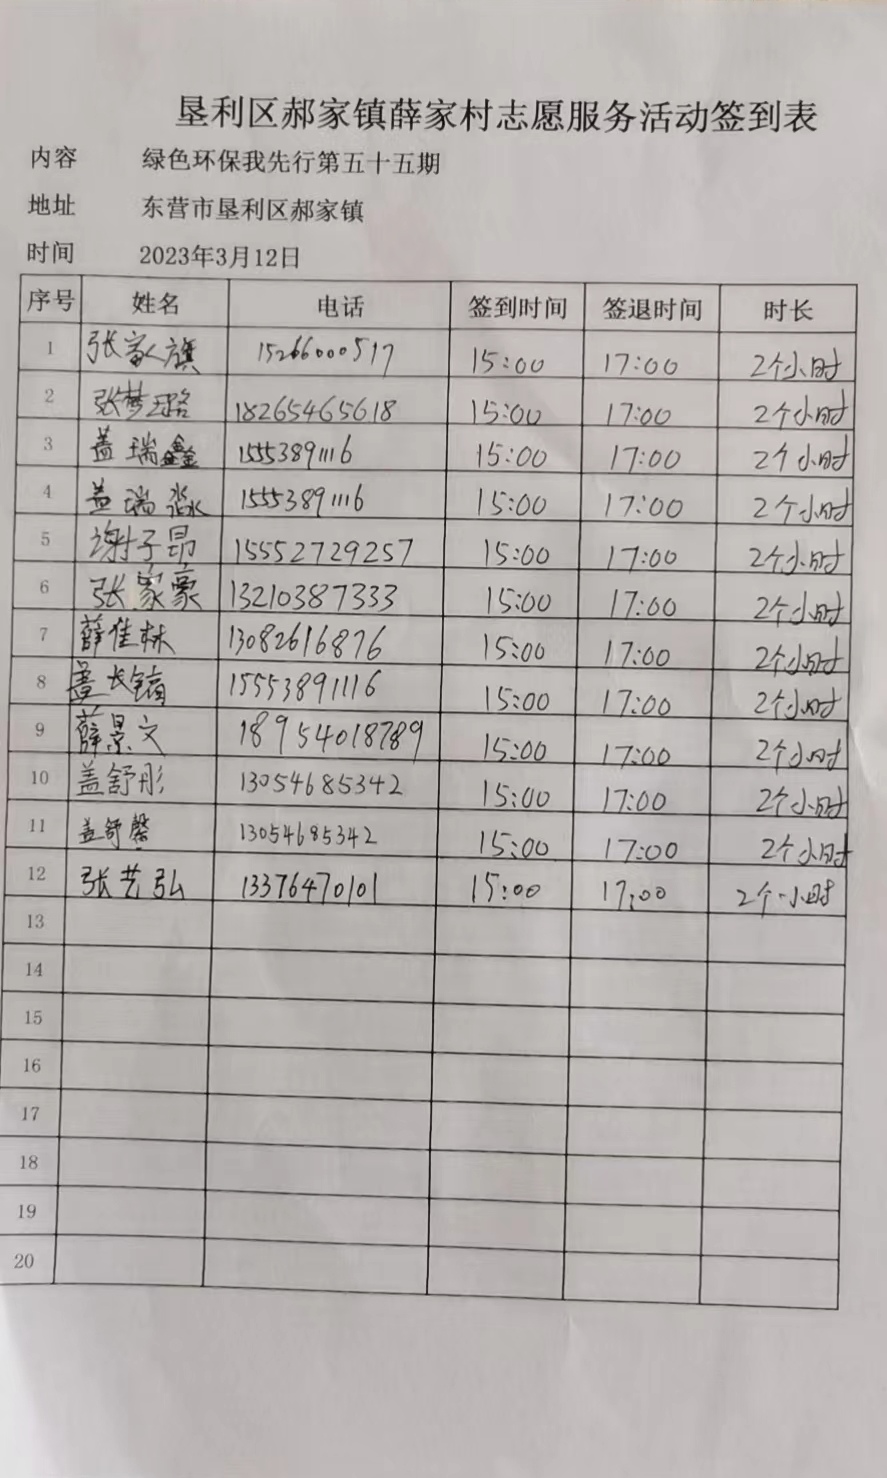 垦利区郝家镇薛家村志愿服务活动签到表
内容 绿色环保我先行第五十五期
地址 东营市垦利区郝家镇
时间 2023年3月12日
序号 姓名 电话 签到时间 签退时间 时长
1 张家旗 15266000517 15:00 17:00 2个小时
2 张梦璐 18265465618 15:00 17:00 2个小时
3 盖瑞鑫 15553891116 15:00 17:00 2个小时
4 盖瑞淼 15553891116 15:00 17:00 2个小时
5 谢子昂 15552729257 15:00 17:00 2个小时
6 张家豪 13210387333 15:00 17:00 2个小时
7 薛佳林 13082616876 15:00 17:00 2个小时
8 盖长 15553891116 15:00 17:00 2个小时
9 薛景文 18954018789 15:00 17:00 2个小时
10 盖舒彤 13054685342 15:00 17:00 2个小时
11 盖舒馨 13054685342 15:00 17:00 2个小时
12 张艺弘 13376470101 15:00 17:00 2个小时
13
14
15
16
17
18
19
20